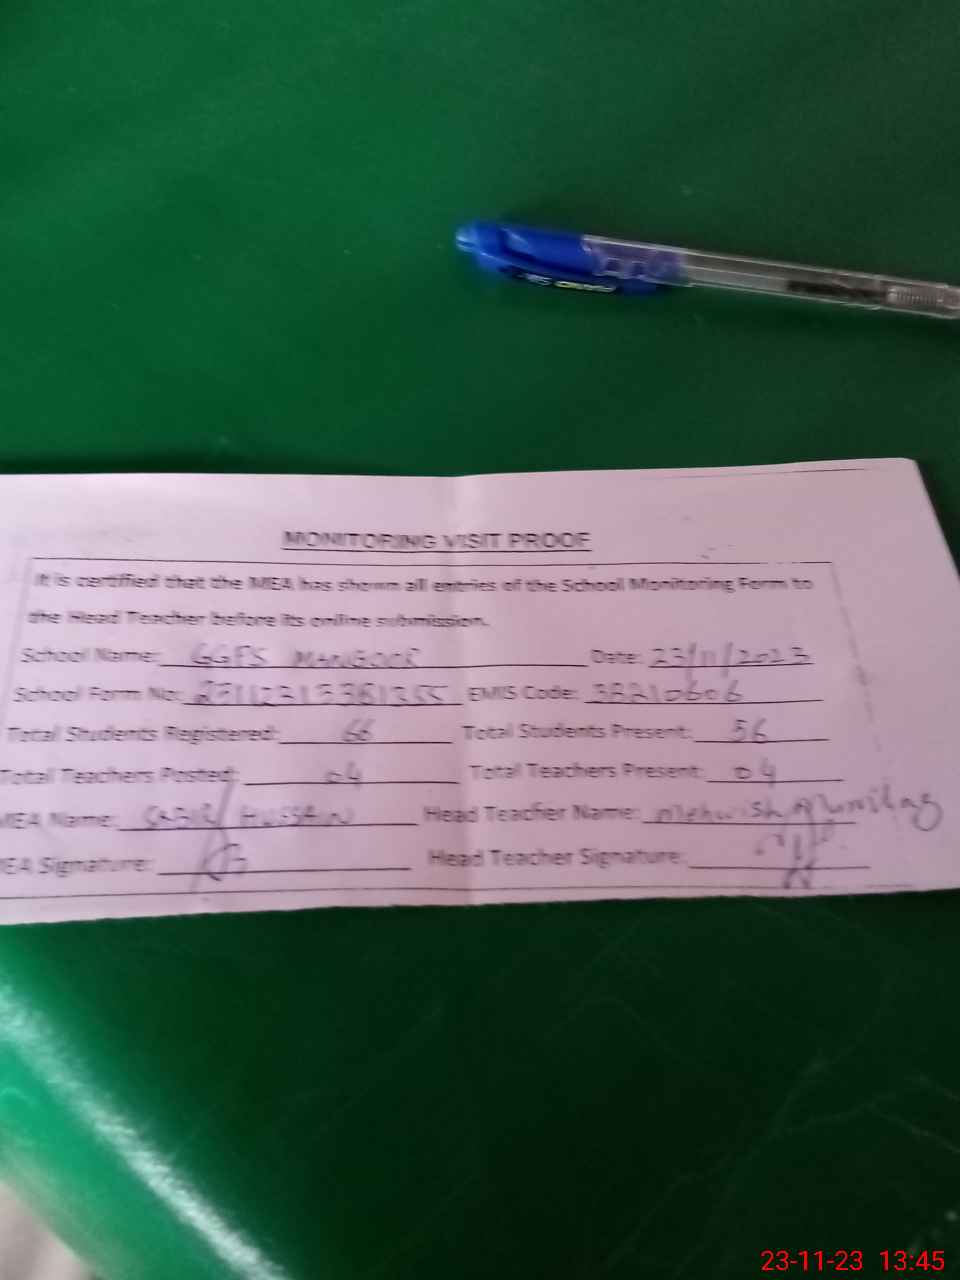 MONITORING VISIT PROOF
It is certified that the MEA has shown all entries of the School Monitoring Form to
the Head Teacher before its online submission.
School Name: GGPS MANGOOR Date: 23/11/2023
School Form No: EMIS Code: 38210606
Total Students Registered: 66 Total Students Present: 56
Total Teachers Posted: 04 Total Teachers Present: 04
MEA Name: SABIR HUSSAIN Head Teacher Name: Mehwish
MEA Signature: Head Teacher Signature:
23-11-23 13:45